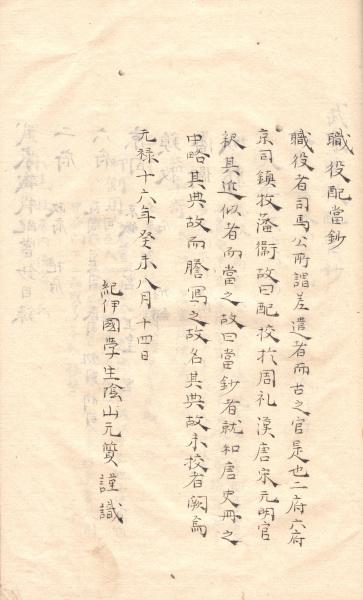 職役配當鈔
職役者司馬公所謂差遣者而古之官是也二府六府
京司鎮牧藩衞故曰配校於周礼漢唐宋元明官
釈其近似者而當之故曰當鈔者就和唐史冊之
中略其典故而謄寫之故名其典故未校者闕焉
元禄十六年癸未八月十四日
紀伊國学生陰山元質謹識